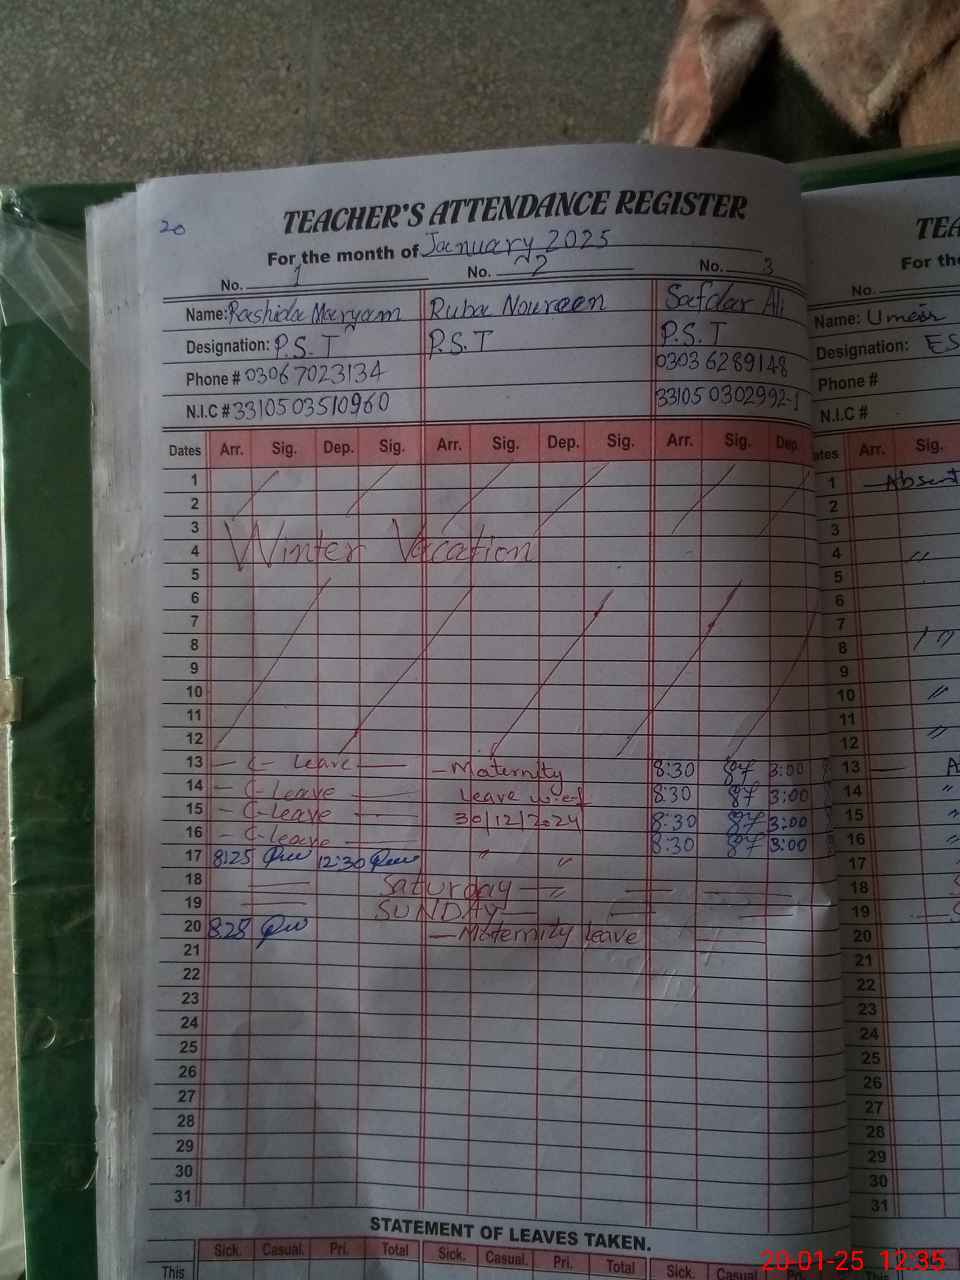 20
TEACHER'S ATTENDANCE REGISTER
For the month of January 2025
No. 1 No. 2 No. 3
Name: Rashida Maryam Ruba Noureen Safdar Ali
Designation: P.S.T P.S.T P.S.T
Phone # 03067023134 0303 6289148
N.I.C # 3310503510960 33105 0302992-1
Dates Arr. Sig. Dep. Sig. Arr. Sig. Dep. Sig. Arr. Sig. Dep.
1
2
3
4 Winter Vacation
5
6
7
8
9
10
11
12
13 — C- Leave — — Maternity 8:30 3:00
14 — C-Leave — Leave w.e.f 8:30 3:00
15 — C-Leave — 30/12/2024 8:30 3:00
16 — C-Leave — 8:30 3:00
17 8:25 12:30 " "
18 Saturday — "
19 SUNDAY —
20 8:28 — Maternity leave
21
22
23
24
25
26
27
28
29
30
31
STATEMENT OF LEAVES TAKEN.
Sick. Casual. Pri. Total Sick. Casual. Pri. Total Sick. Casual. Pri.
This
TEA
For the
No.
Name: Umair
Designation: ES
Phone #
N.I.C #
ates Arr. Sig.
1 Absent
2
3
4 "
5
6
7
8 "
9
10 "
11
12 "
13 — A
14 "
15 "
16 "
17 "
18 S
19 — S
20
21
22
23
24
25
26
27
28
29
30
31
20-01-25 12:35